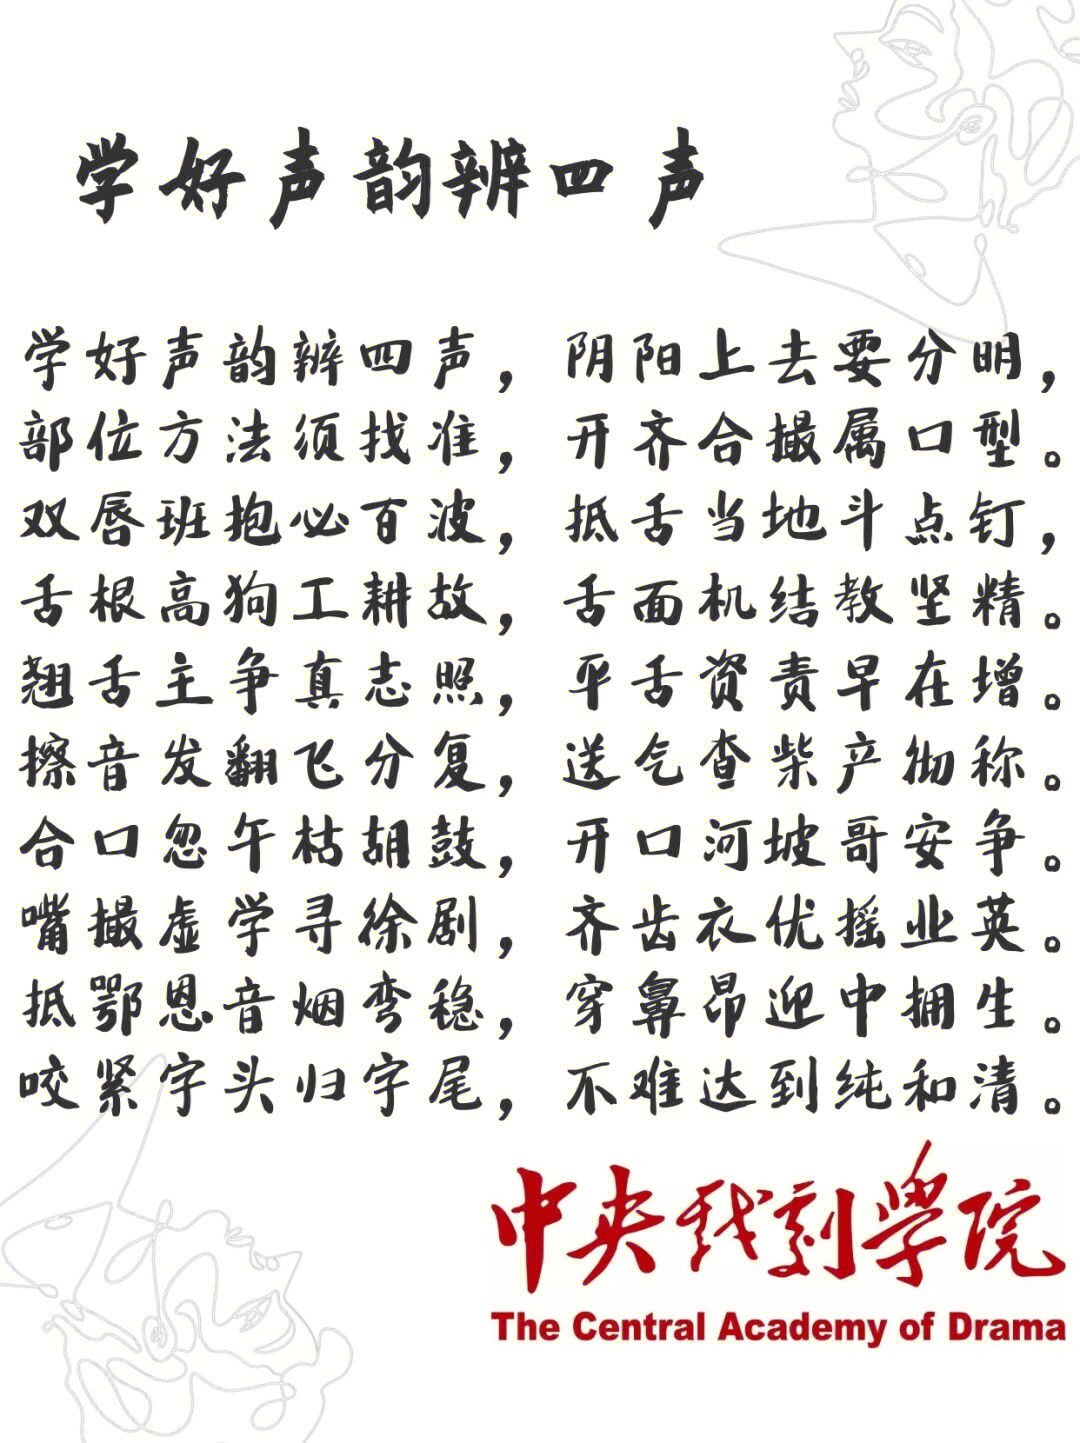 学好声韵辨四声
学好声韵辨四声，阴阳上去要分明，
部位方法须找准，开齐合撮属口型。
双唇班抱必百波，抵舌当地斗点钉，
舌根高狗工耕故，舌面机结教坚精。
翘舌主争真志照，平舌资责早在增。
擦音发翻飞分复，送气查柴产彻称。
合口忽午枯胡鼓，开口河坡哥安争。
嘴撮虚学寻徐剧，齐齿衣优摇业英。
抵鄂恩音烟弯稳，穿鼻昂迎中拥生。
咬紧字头归字尾，不难达到纯和清。
中央戏剧学院
The Central Academy of Drama